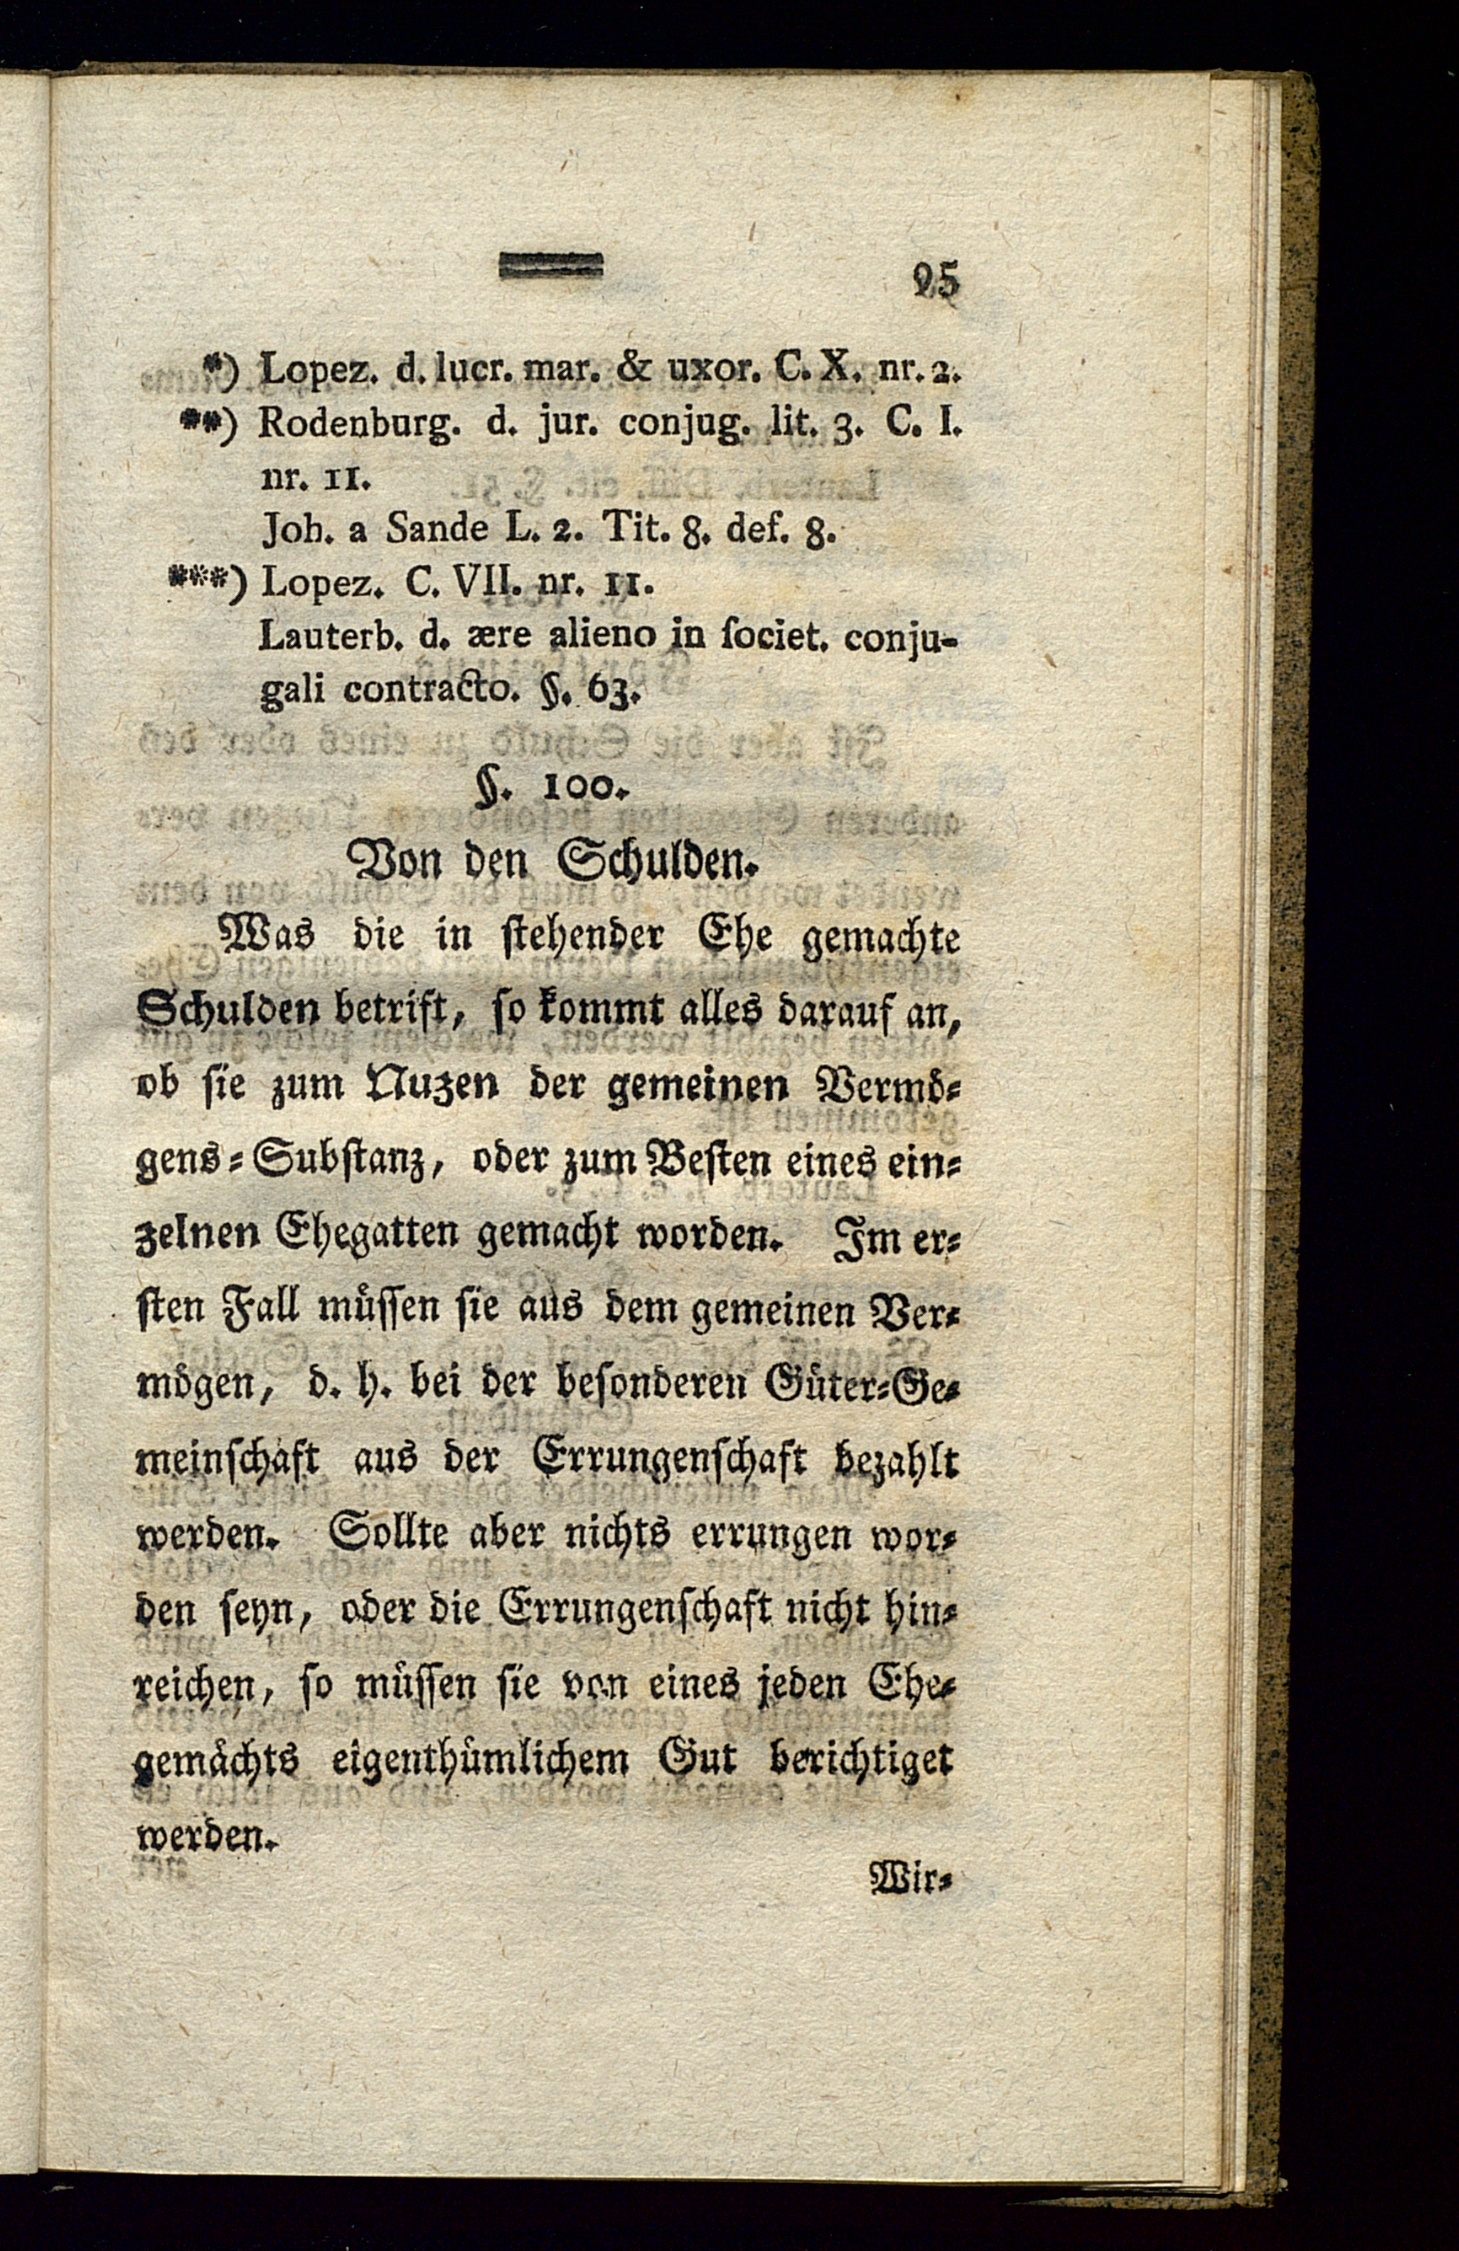 95
*) Lopez. d. lucr. mar. & uxor. C. X. nr. 2.
**) Rodenburg. d. jur. conjug. lit. 3. C. I.
nr. 11.
Joh. a Sande L. 2. Tit. 8. def. 8.
***) Lopez. C. VII. nr. 11.
Lauterb. d. ære alieno in ſociet. conju-
gali contracto. §. 63.
§. 100.
Von den Schulden.
Was die in ſtehender Ehe gemachte
Schulden betrift, ſo kommt alles darauf an,
ob ſie zum Nuzen der gemeinen Vermö-
gens-Subſtanz, oder zum Beſten eines ein-
zelnen Ehegatten gemacht worden. Im er-
ſten Fall müſſen ſie aus dem gemeinen Ver-
mögen, d. h. bei der beſonderen Güter-Ge-
meinſchaft aus der Errungenſchaft bezahlt
werden. Sollte aber nichts errungen wor-
den ſeyn, oder die Errungenſchaft nicht hin-
reichen, ſo müſſen ſie von eines jeden Ehe-
gemächts eigenthümlichem Gut berichtiget
werden.
Wir-